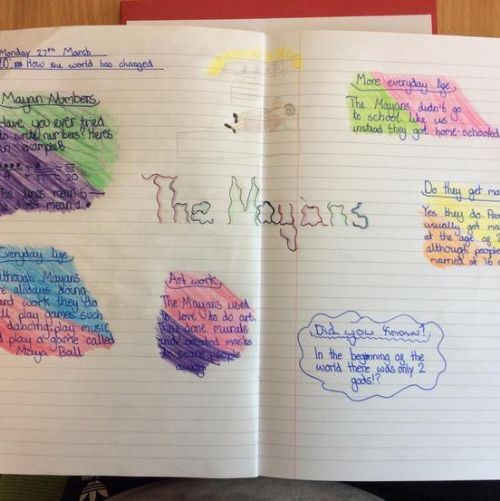 Monday 27th March
How the world has changed
Mayan Numbers
Have you ever tried
to write numbers? Here's
an example:
20
The lines mean 5
dots mean 1
The Mayans
Everyday life
Although Mayans
are always doing
and work they do
play games such
dancing, play music
play a game called
Maya Ball
Art work
The Mayans used
to love to do art.
They done murals
and created masks
to scare people
away
More everyday life
The Mayans didn't go
to school like us
instead they got home-schooled
Do they get ma
Yes they do.
usually got ma
at the age of 2
although people
married at 16
Did you know?
In the beginning of the
world there was only 2
gods!?